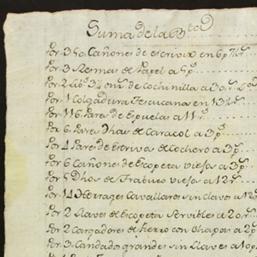 Suma de la Bta
Por 350 Cañones de escrivir en 6 p
Por 3 Resmas de Papel a 5 p
Por 2 lib 3 onz de Cochinilla a 3
Por 1 Colgadura Texcucana en 13
Por 116 Pares de Espuelas a 11 r
Por 6 Pares Dhas de Caracol a 3 p
Por 4 Pares de estrivos de Cochero a 3 p
Por 6 Cañones de Escopeta viejos a 3 p
Por 5 Dhos de Trabuco viejos a 12 r
Por 14 Herrages Cavallares sin clavo a 12
Por 2 Llaves de Escopeta servibles a 20 r
Por 2 Cargadores de fierro con chapas a 2 p
Por 3 Candados grandes sin Llaves a 10